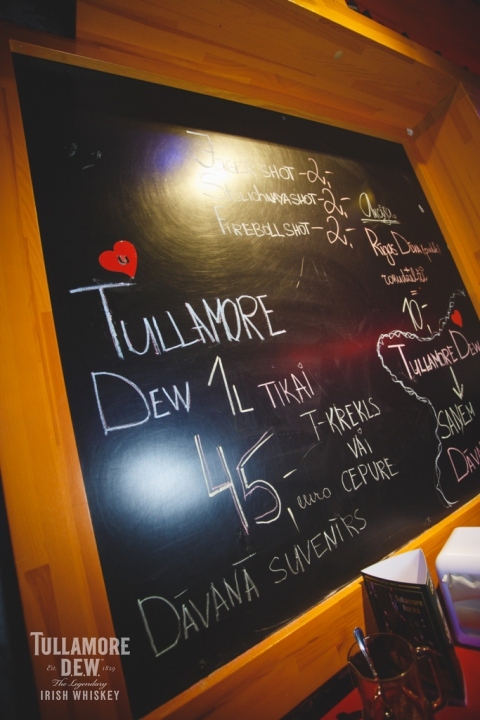 JAGER SHOT - 2,-
STOLICHNAYA SHOT - 2,-
FIREBOLL SHOT - 2,-
TULLAMORE
DEW 1L TIKAI
45,- euro
T-KREKLS
VAI
CEPURE
DĀVANĀ SUVENĪRS
Rīgas
10,-
TULLAMORE DEW
SAŅEM
TULLAMORE
D.E.W.
Est. 1829
The Legendary
IRISH WHISKEY